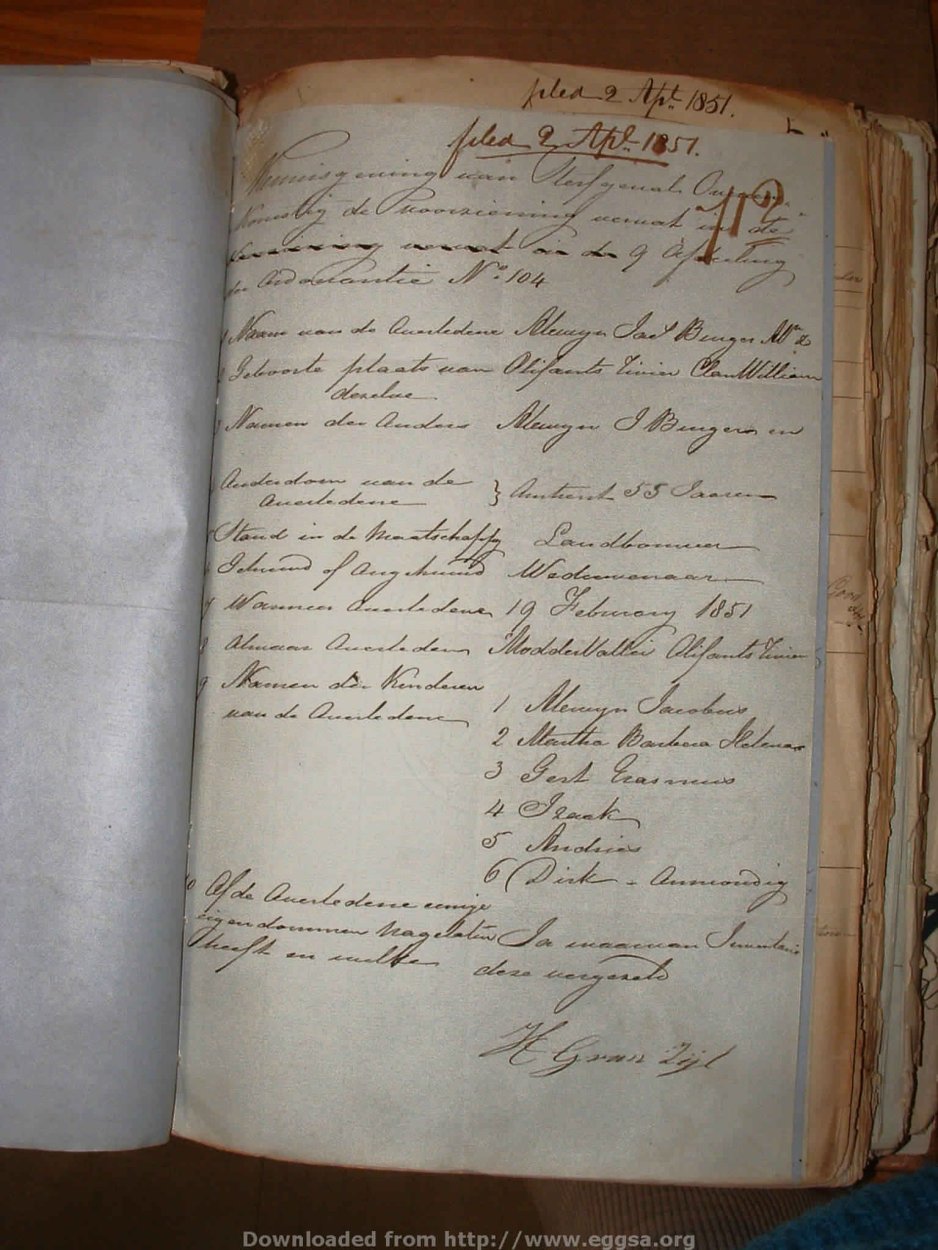 filed 2 Apl 1851.
filed 2 Apl 1851.
Kennisgeving van Sterfgeval
112
Komstig de voorziening vervat in de
vervat in de 9 Afdeeling
der Ordonantie No. 104
1 Naam van de Overledene Alewyn Jacs Burger AWn Z
2 Geboorte plaats van Olifants rivier ClanWilliam
dezelve
3 Namen der Ouders Alewyn J Burger en
Ouderdom van de
Overledene } Omtrent 55 Jaaren
5 Stand in de Maatschappy Landbouwer
6 Gehuwd of Ongehuwd Weduwenaar
7 Wanneer Overledene 19 February 1851
8 Alwaar Overleden ModderVallei Olifants rivier
9 Namen der Kinderen
van de Overledene
1 Alewyn Jacobus
2 Martha Barbera Helena
3 Gert Erasmus
4 Izaak
5 Andries
6 Dirk - Onmondig
10 Of de Overledene eenige
eigendommen nagelaten Ja waarvan Inventaris
heeft en welke deze vergezeld
H G van Zijl
Downloaded from http://www.eggsa.org